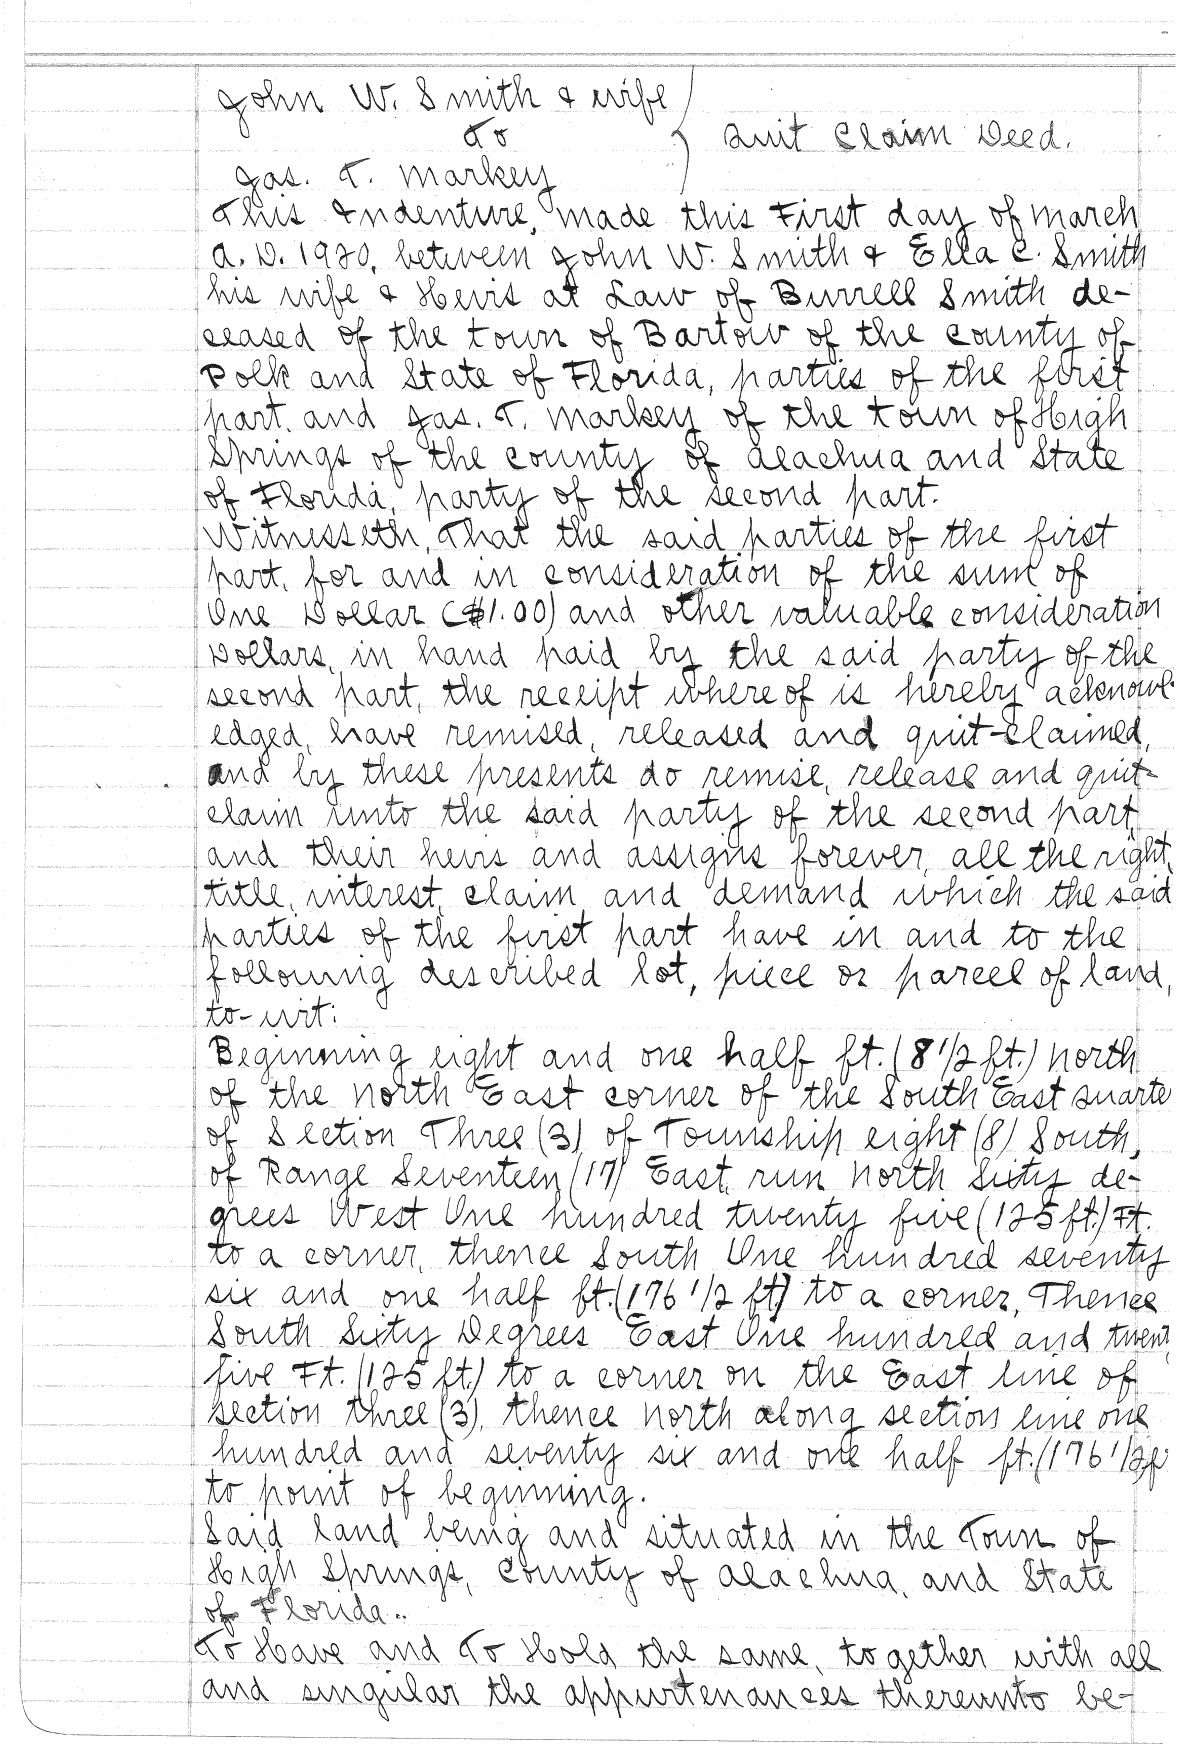 John W. Smith & wife
To
Quit Claim Deed.
Jas. T. Markey
This Indenture, made this First day of March
A. D. 1920, between John W. Smith & Ella C. Smith
his wife & Heirs at Law of Burrell Smith de-
ceased of the town of Bartow of the county of
Polk and State of Florida, parties of the first
part, and Jas. T. Markey of the town of High
Springs of the county of Alachua and State
of Florida, party of the second part.
Witnesseth, That the said parties of the first
part, for and in consideration of the sum of
One Dollar ($1.00) and other valuable consideration
Dollars, in hand paid by the said party of the
second part, the receipt whereof is hereby acknowl-
edged, have remised, released and quit-claimed,
and by these presents do remise, release and quit-
claim unto the said party of the second part,
and their heirs and assigns forever, all the right,
title, interest, claim and demand which the said
parties of the first part have in and to the
following described lot, piece or parcel of land,
to-wit:
Beginning eight and one half ft. (8 1/2 ft.) North
of the North East corner of the South East Quarte
of Section Three (3) of Township eight (8) South,
of Range Seventeen (17) East, run North Sixty de-
grees West One hundred twenty five (125 ft.) Ft.
to a corner, thence South One hundred seventy
six and one half ft. (176 1/2 ft) to a corner, Thence
South Sixty Degrees East One hundred and twent
five Ft. (125 ft.) to a corner on the East line of
section three (3), thence North along section line one
hundred and seventy six and one half ft. (176 1/2 f
to point of beginning.
Said land being and situated in the Town of
High Springs, County of Alachua, and State
of Florida..
To Have and To Hold the same, together with all
and singular the appurtenances thereunto be-